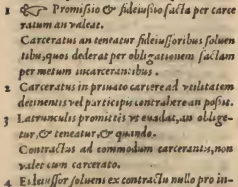 1 ☞ Promissio & fideiussio facta per carce
ratum an valeat.
Carceratus an teneatur fideiussoribus soluen
tibus, quos dederat per obligationem factam
per metum incarcerantibus.
2 Carceratus in priuato carcere ad vtilitatem
detinentis vel participis contrahere an possit.
3 Latrunculis promittis vt euadat, an oblige-
tur, & teneatur, & quando.
Contractus ad commodum carcerantis, non
valet cum carcerato.
4 Fideiussor soluens ex contractu nullo pro in-